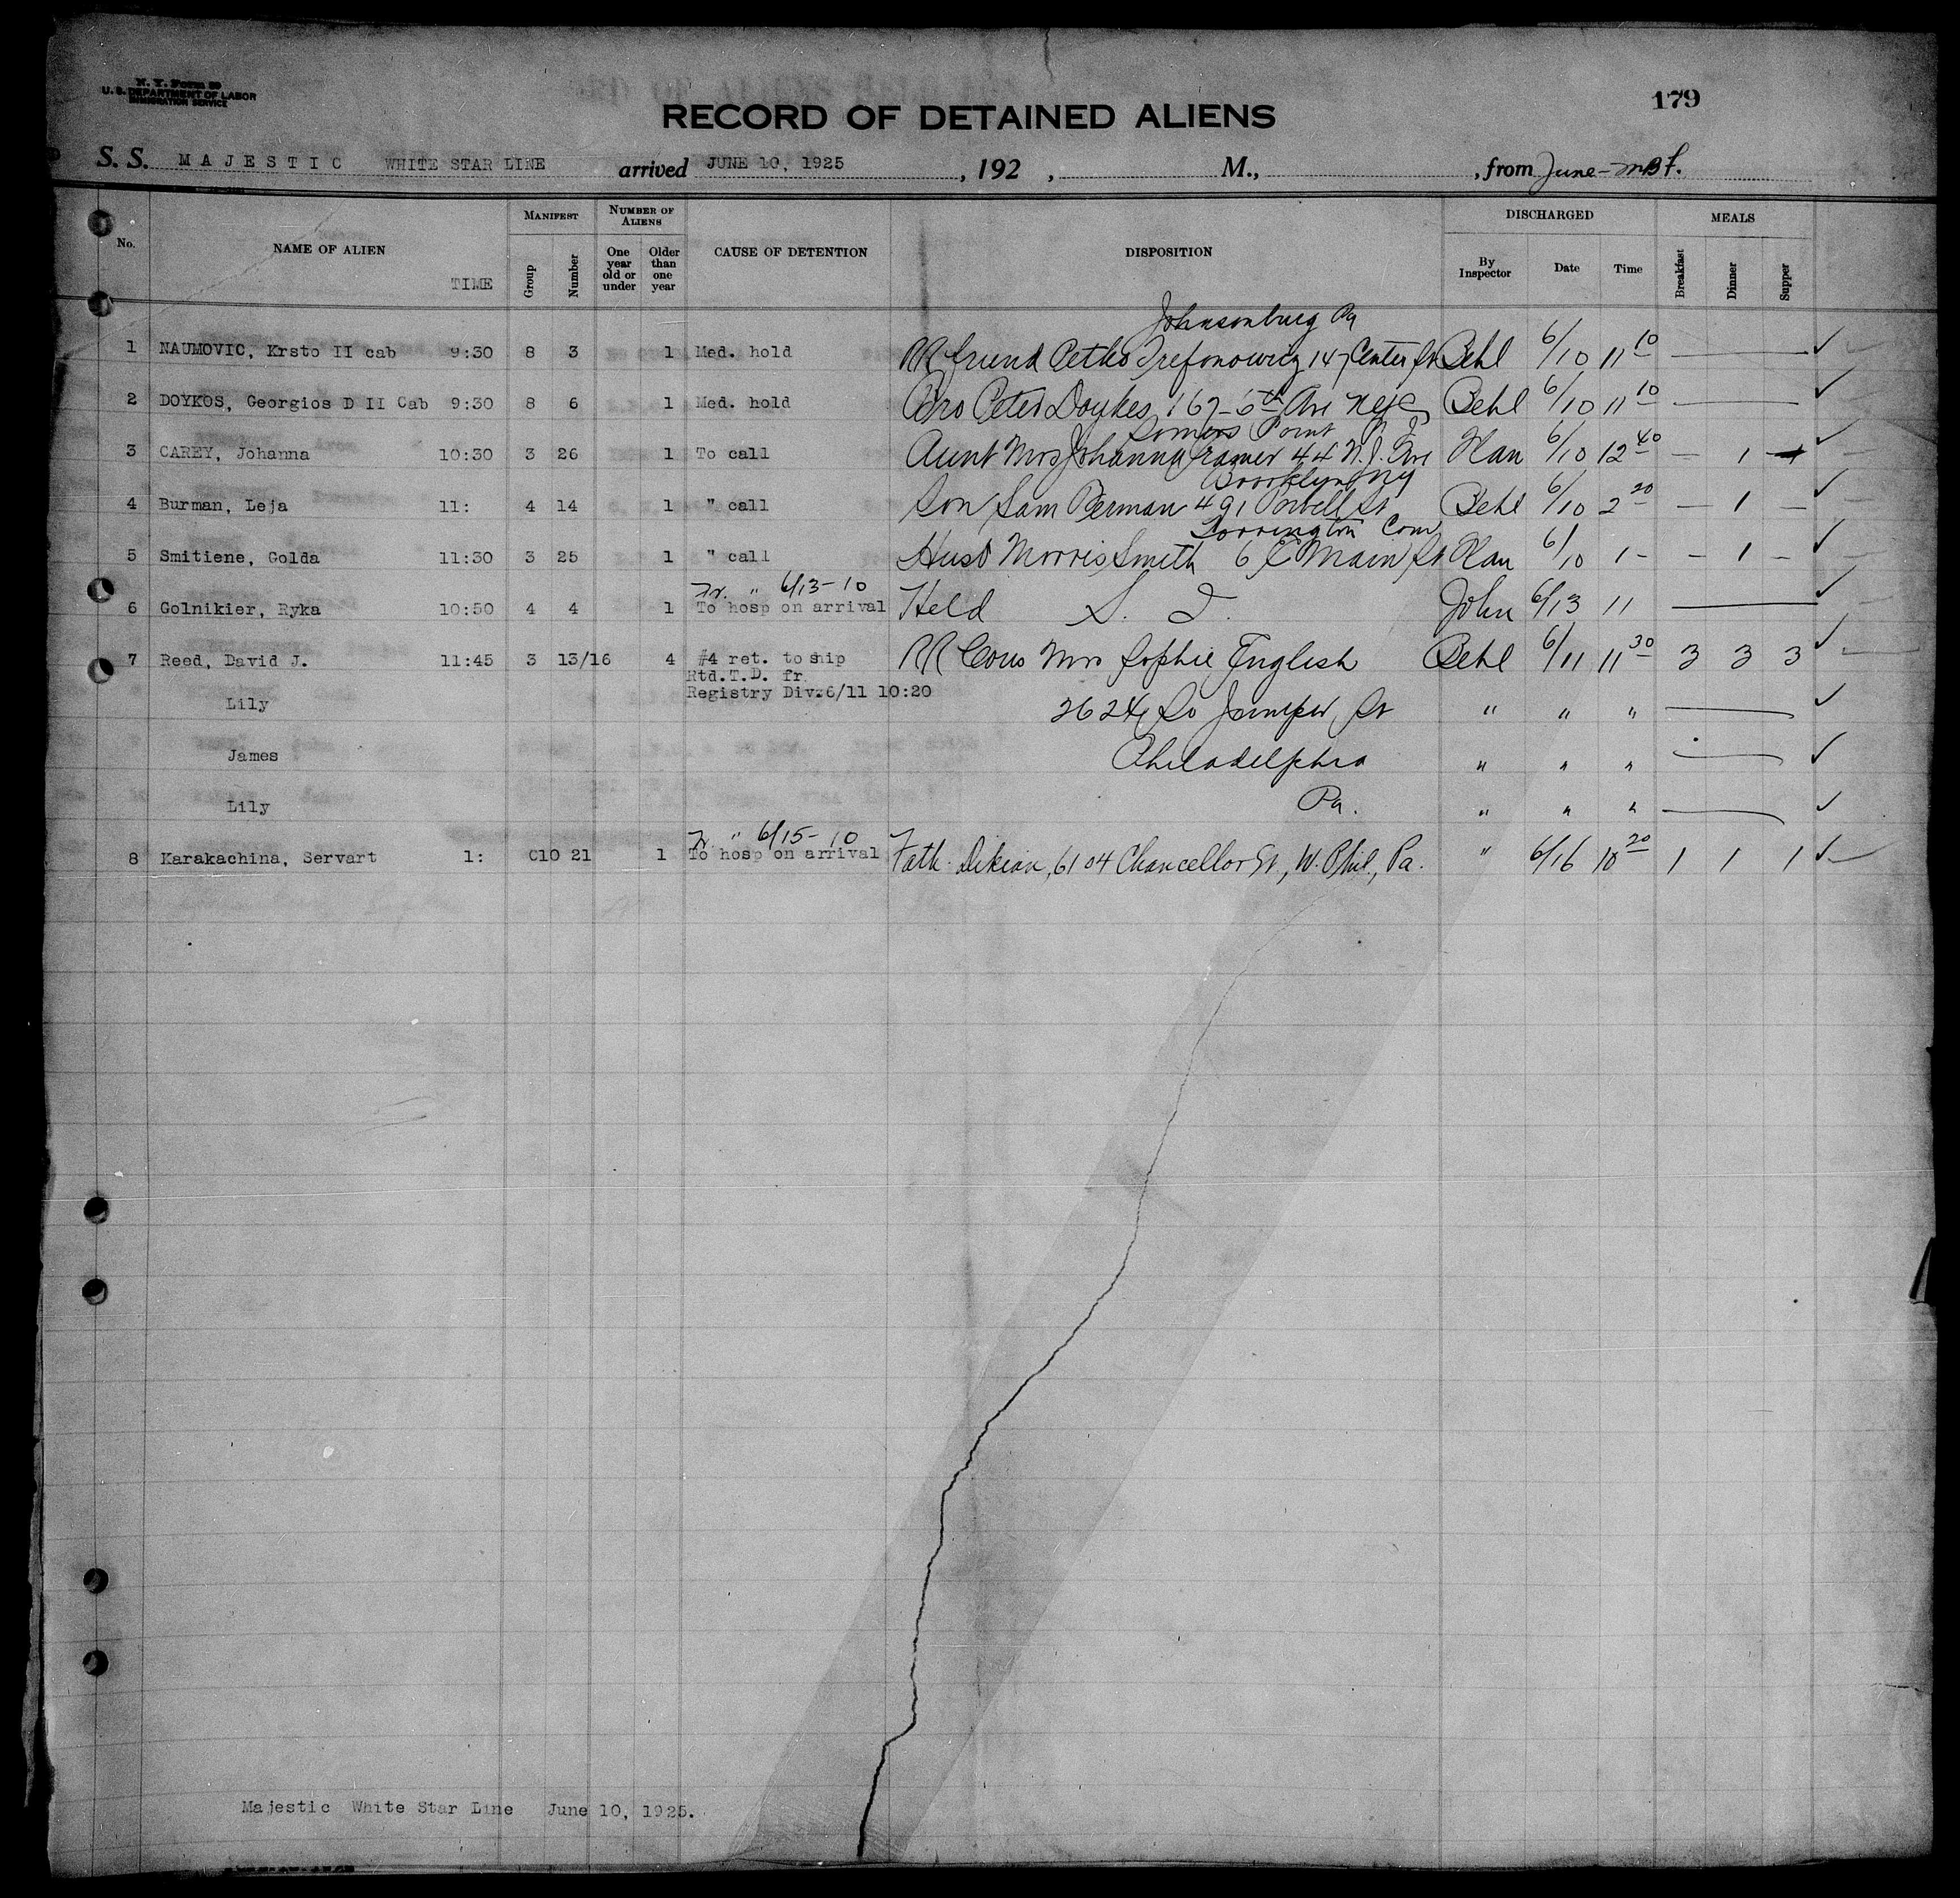 N. Y. Form 50
U. S. DEPARTMENT OF LABOR
IMMIGRATION SERVICE
179
RECORD OF DETAINED ALIENS
S. S. MAJESTIC WHITE STAR LINE arrived JUNE 10, 1925, 192 , M., , from June
No. NAME OF ALIEN TIME MANIFEST Group Number NUMBER OF ALIENS One year old or under Older than one year CAUSE OF DETENTION DISPOSITION DISCHARGED By Inspector Date Time MEALS Breakfast Dinner Supper
Johnsonburg Pa
1 NAUMOVIC, Krsto II cab 9:30 8 3 1 Med. hold RR friend Trefonowicz 147 Center St Behl 6/10 11 10 ✓
2 DOYKOS, Georgios D II Cab 9:30 8 6 1 Med. hold Bro Peter Doykos 167-6th Ave NYC Behl 6/10 11 10 ✓
Somers Point N J
3 CAREY, Johanna 10:30 3 26 1 To call Aunt Mrs Johanna 44 N.J. Ave Han 6/10 12 40 — 1 — ✓
Brooklyn NY
4 Burman, Leja 11: 4 14 1 " call Son Sam Berman 491 Powell St Behl 6/10 2 20 — 1 — ✓
Torrington Conn
5 Smitiene, Golda 11:30 3 25 1 " call Husb Morris Smith 6 E Main St Han 6/10 1 - — 1 — ✓
Fr. " 6/13-10
6 Golnikier, Ryka 10:50 4 4 1 To hosp on arrival Held S. I. John 6/13 11 ✓
7 Reed, David J. 11:45 3 13/16 4 #4 ret. to ship RR Cous Mrs Sophie English Behl 6/11 11 30 3 3 3 ✓
Rtd.T.D. fr.
Registry Div.6/11 10:20
Lily 2624 So Juniper St " " " ✓
James Philadelphia " " " ✓
Lily Pa. " " " ✓
Fr. " 6/15-10
8 Karakachina, Servart 1: C10 21 1 To hosp on arrival Fath. Dikian, 6104 Chancellor St., W. Phil., Pa. " 6/16 10 20 1 1 1 ✓
Majestic White Star Line June 10, 1925.